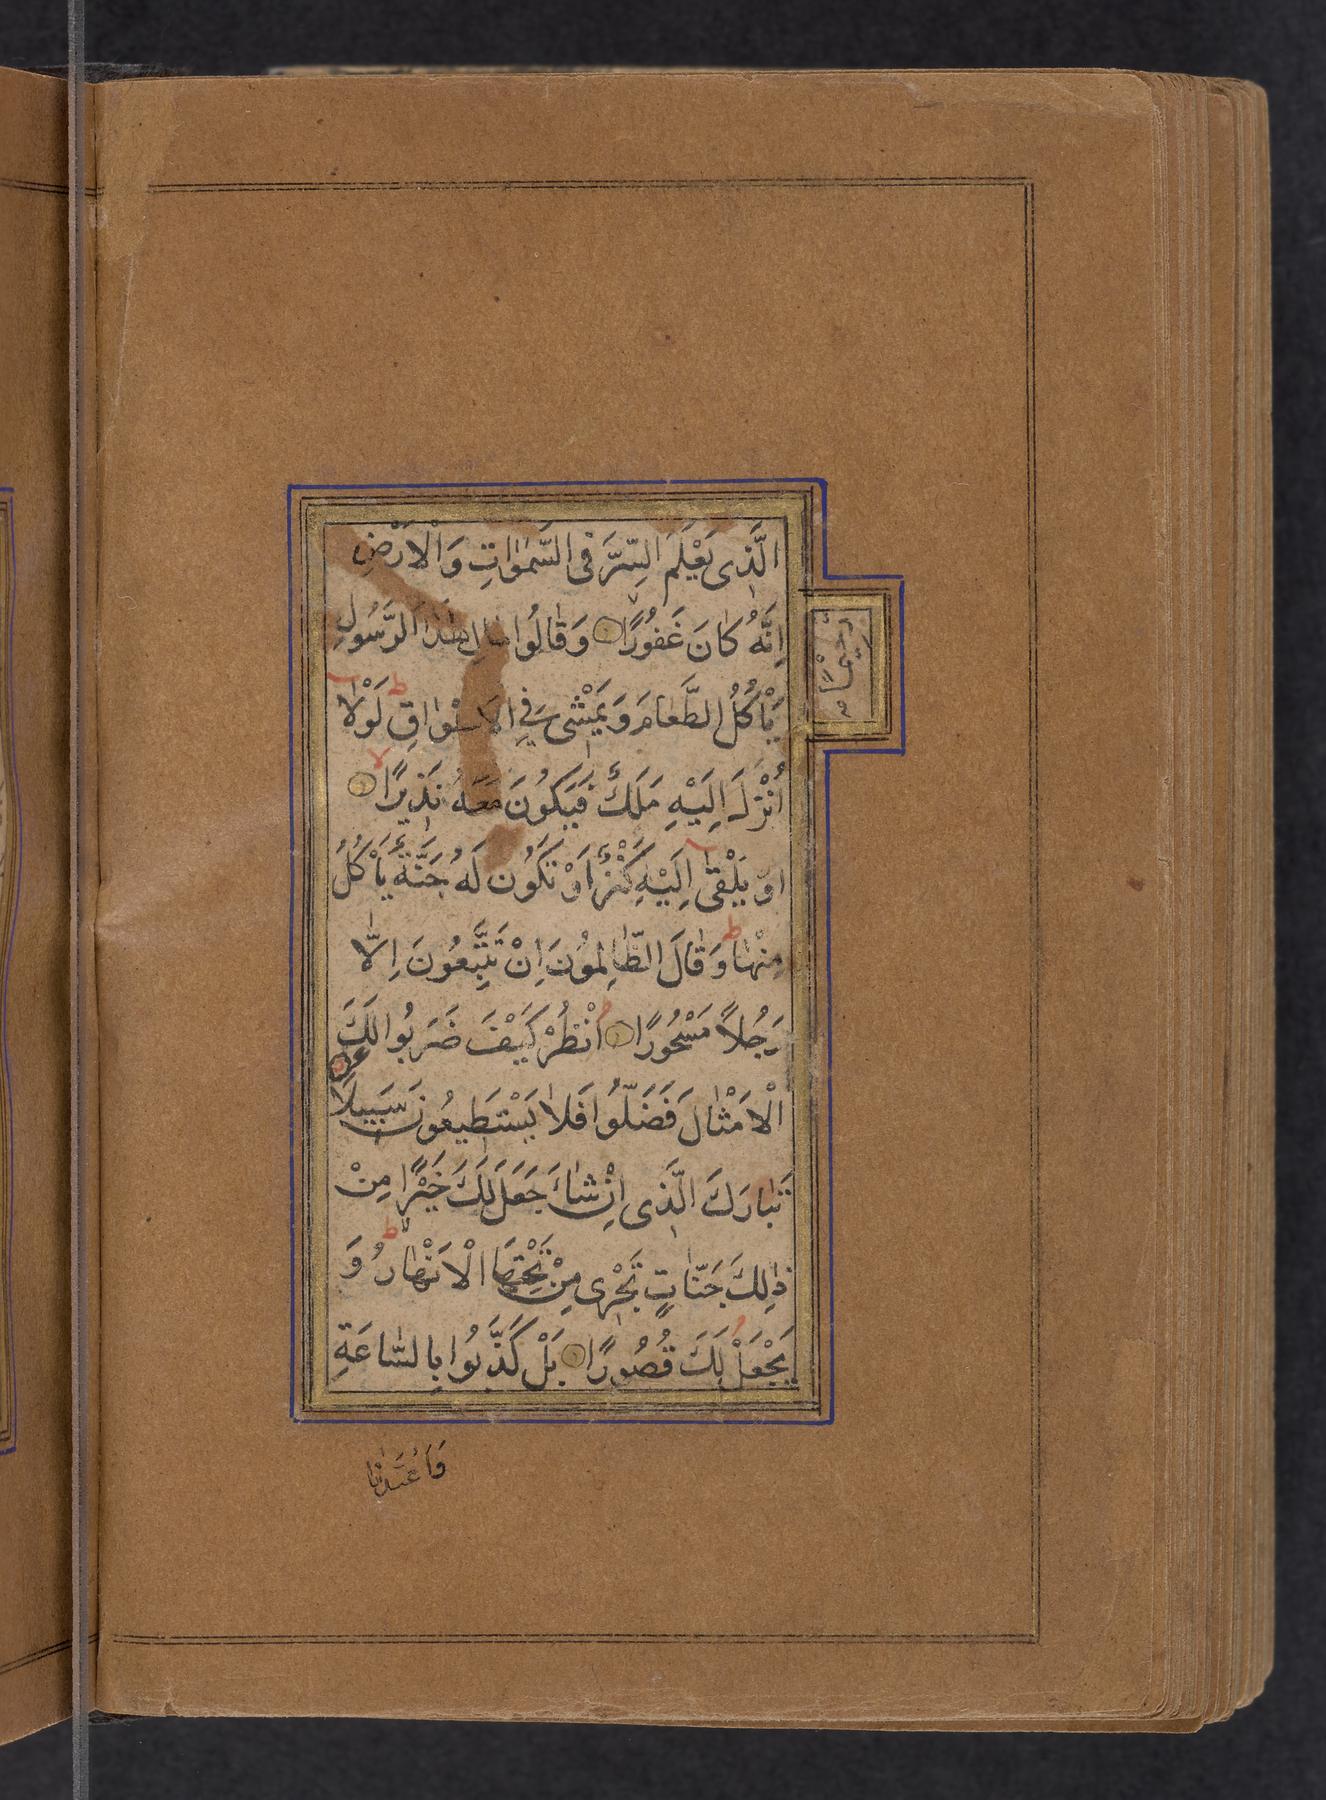 الَّذِى يَعْلَمُ السِّرَّ فِى السَّمٰوَاتِ وَالْاَرْضِ
اِنَّهُ كَانَ غَفُورًا وَقَالُوا مَالِ هٰذَا الرَّسُولِ
يَاْكُلُ الطَّعَامَ وَيَمْشِى فِى الْاَسْوَاقِ لَوْلَا
اُنْزِلَ اِلَيْهِ مَلَكٌ فَيَكُونَ مَعَهُ نَذِيرًا
اَوْ يُلْقٰى اِلَيْهِ كَنْزٌ اَوْ تَكُونُ لَهُ جَنَّةٌ يَاْكُلُ
مِنْهَا وَقَالَ الظَّالِمُونَ اِنْ تَتَّبِعُونَ اِلَّا
رَجُلًا مَسْحُورًا اُنْظُرْ كَيْفَ ضَرَبُوا لَكَ
الْاَمْثَالَ فَضَلُّوا فَلَا يَسْتَطِيعُونَ سَبِيلًا
تَبَارَكَ الَّذِى اِنْ شَاءَ جَعَلَ لَكَ خَيْرًا مِنْ
ذٰلِكَ جَنَّاتٍ تَجْرِى مِنْ تَحْتِهَا الْاَنْهَارُ وَ
يَجْعَلْ لَكَ قُصُورًا بَلْ كَذَّبُوا بِالسَّاعَةِ
رَحِيمًا
وَاَعْتَدْنَا